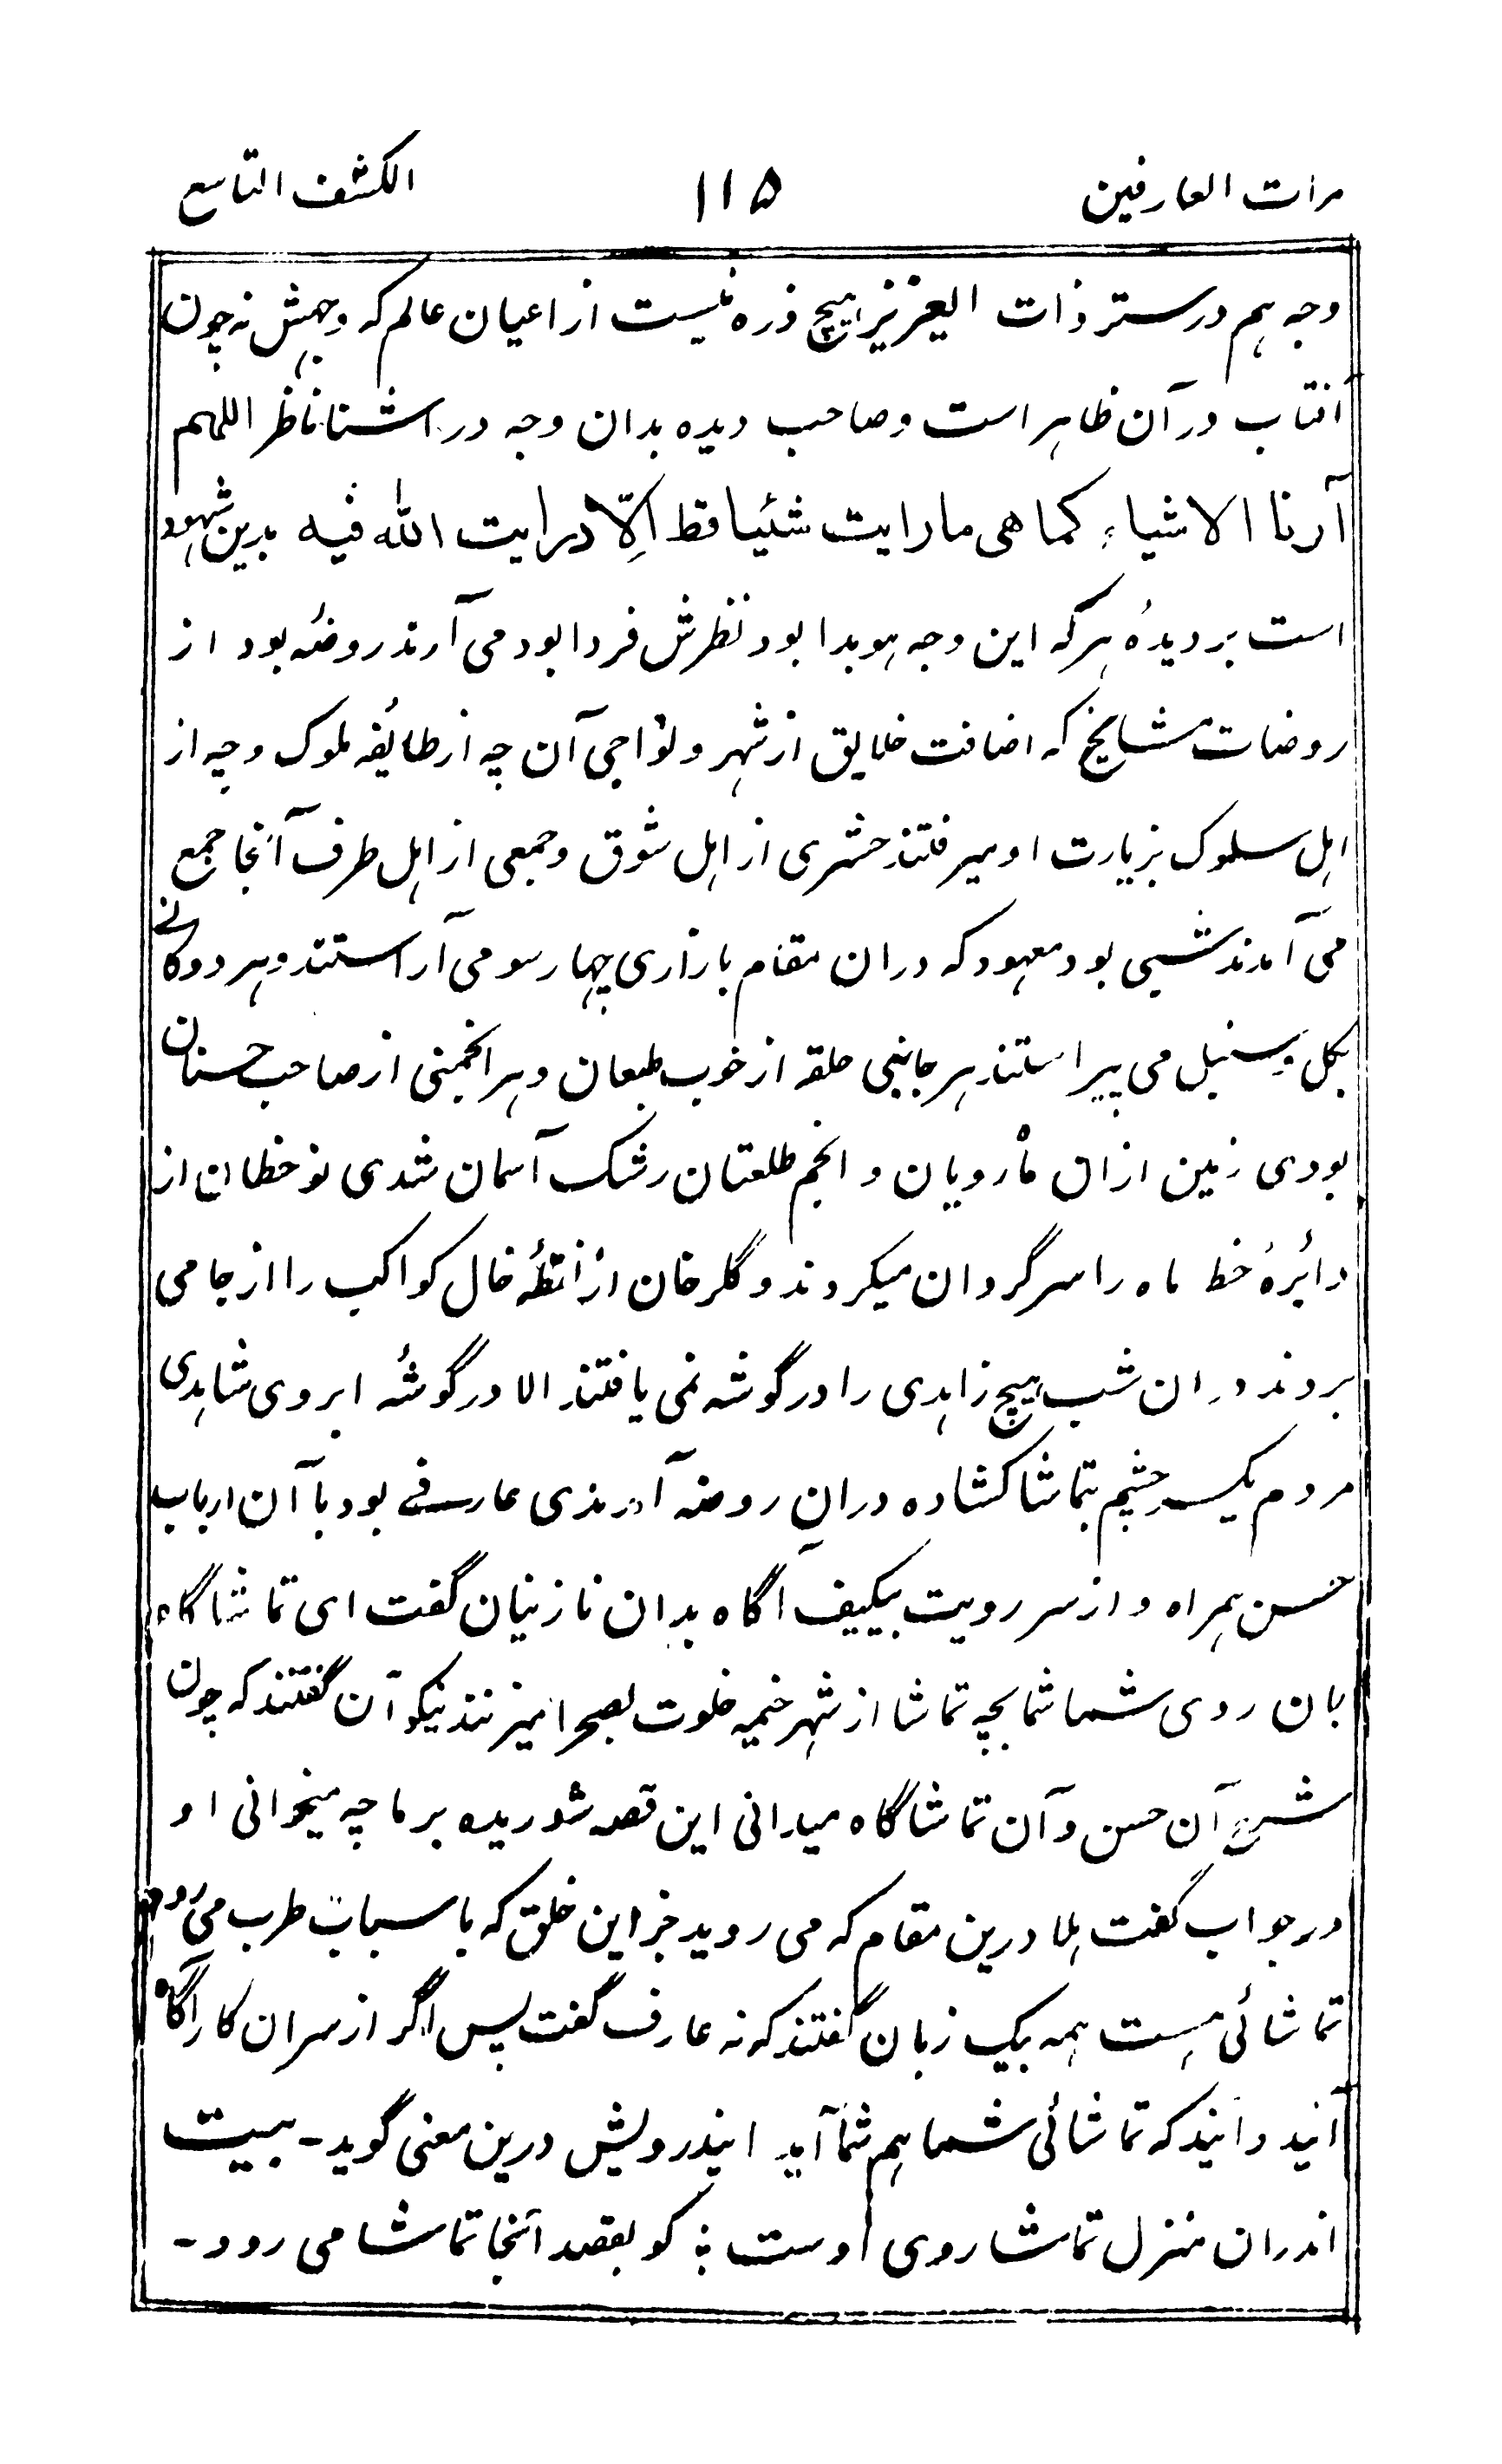 مرات العارفین ۱۱۵ الکشف التاسع
وجه هم در ستر ذات العزیز هیچ ذره نیست از اعیان عالم که وجهش نه چون
آفتاب در آن ظاهر است و صاحب دیده بدان وجه در اشنا ناظر اللهم
آرنا الاشیاء کما هی ما رایت شئیا قط اِلّا ورایت الله فیه بدین شهود
است بر دیدهٔ هر که این وجه هویدا بود نظرش فردا بود می آرند روضهٔ بود از
روضات مشایخ که اضافت خلایق از شهر و نواحی آن چه از طایفه ملوک و چه از
اهل سلوک بزیارت او میرفتند حشری از اهل شوق و جمعی از اهل طرف آنجا جمع
می آمدند شبی بود معهود که دران مقام بازاری چهار سو می آراستند و هر دوکانے
بکل و سنبل می پیراستند هر جانبی حلقه از خوب طبعان و هر انجمنی از صاحب حسنان
بودی زمین ازان ماه رویان و انجم طلعتان رشک آسمان شدی نو خطان از
دائرهٔ خط ماه را سرگردان میکردند و گلرخان از نقطهٔ خال کواکب را از جا می
بردند دران شب هیچ زاهدی را در گوشه نمی یافتند الا در گوشهٔ ابروی شاهدی
مردم یکسر چشم بتماشا کشاده دران روضه آمدندی عارفے بود با آن ارباب
حسن همراه و از سر رویت بیکیف آگاه بدان نازنیان گفت ای تماشا گاه
بان روی شما شما بچه تماشا از شهر خیمه خلوت بصحرا میزنند نیکوآن گفتند که چون
شرح آن حسن و آن تماشا گاه میدانی این قصه شوریده بر ما چه میخوانی او
در جواب گفت هلا درین مقام که می روید جز این خلق که با سباب طرب می روند
تماشائی هست همه بیک زبان گفتند که نه عارف گفت پس اگر از سران کار آگاه
آنید دانید که تماشائی شما هم شما آید ایندرویش درین معنی گوید ـ بیت
اندران منزل تماشا روی اوست ؛ کو بقصد آنجا تماشا می رود ـ